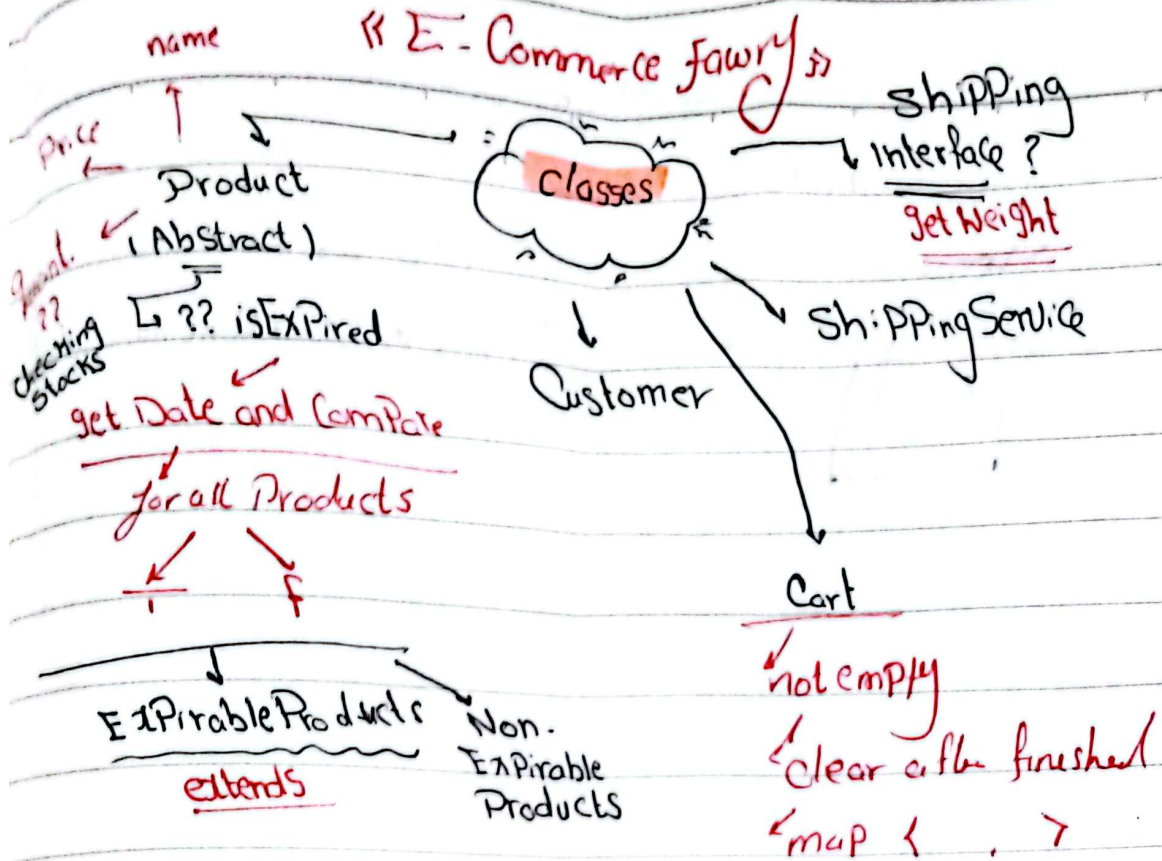 « E-Commerce fawry »
name
Price
Product
(Abstract)
Quant.
??
checking
stocks
?? isExPired
get Date and ComPare
for all Products
T
f
ExPirableProducts
extends
Non-
ExPirable
Products
classes
Customer
ShiPPing
interface ?
getWeight
ShiPPingService
Cart
not empty
clear after finished
map < , >